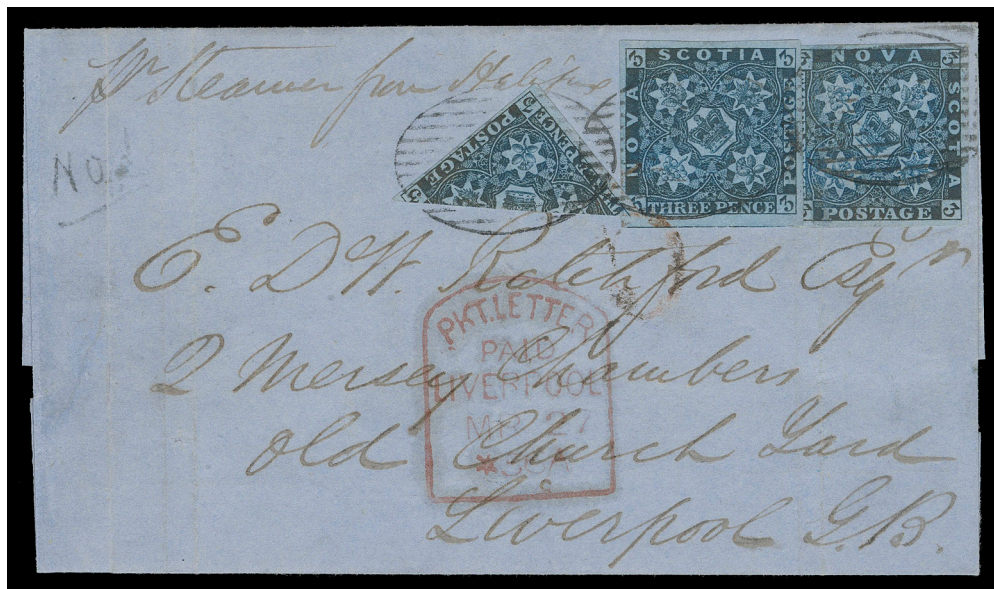 Pr Steamer from Halifax
No 1
3 PENCE
POSTAGE
3 SCOTIA 3
NOVA
POSTAGE
3 THREE PENCE 3
3 NOVA
SCOTIA
3 POSTAGE 3
E. D W. Ratchford Esqr
2 Mersey Chambers
Old Church Yard
Liverpool G.B.
PKT. LETTER
PAID
LIVERPOOL
MR 27